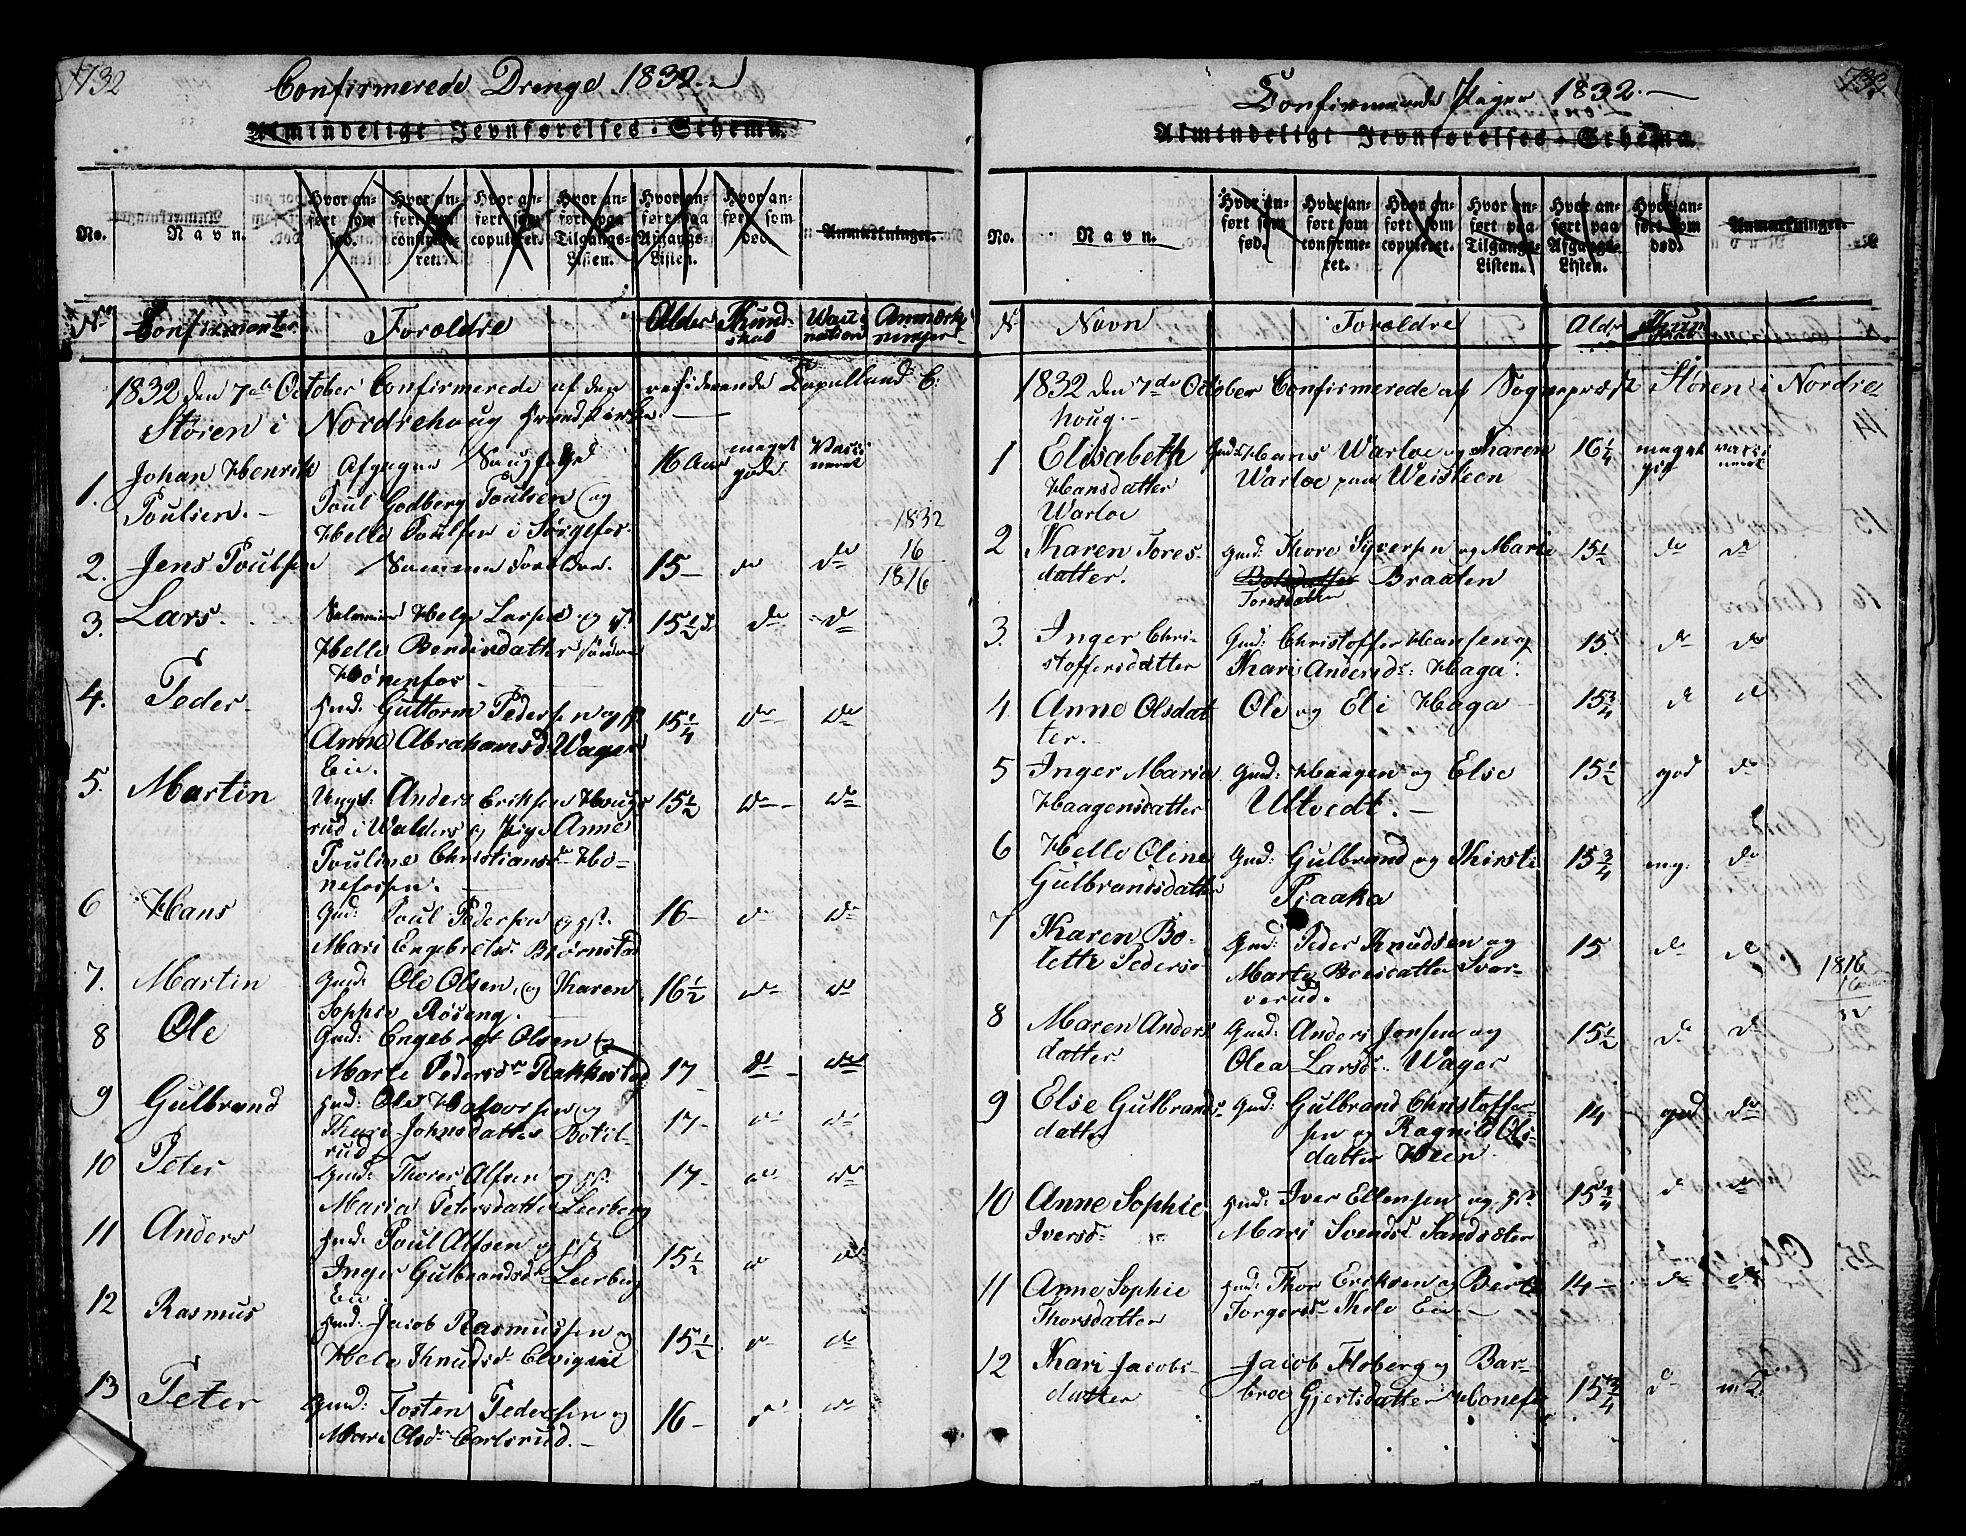 732
Confirmerede Drenge 1832.
Almindeligt Jevnførelses-Schema.
No.
Navn.
Hvor anført som fød.
Hvor anført som confirmeret.
Hvor anført som copuleret.
Hvor anført paa Tilgangs-Listen.
Hvor anført paa Afgangs-Listen.
Hvor anført som død.
Anmærkninger.
No Confirmanter Forældre Alder Kundskab Vaccination Anmærkninger
1832 den 7de October Confirmerede af den residerende
Støren i Nordrehoug
1. Johan Henrik Poulsen.
Poul Godberg Poulsen og
Helle Poulsen i
16 Aar meget god Vaccineret
1832
16
1816
2. Jens Poulsen Samme Forældre. 15 do do
3. Lars. Helge Larsen og
Helle
Hønenfos
15 1/2 do do
4. Peder. Gmd: Guttorm Pedersen og
Anne Abrahamsd: Wager
Eie.
15 1/4 do do
5. Martin Ungk: Anders Eriksen
rud i Walders og Pige Anne
Pouline Christiansdr Hønefossen.
15 1/2 do do
6 Hans Gmd: Poul Pedersen og
Mari Engebretsdr Bjørnstad
16 do do
7. Martin Gmd: Ole Olsen og Karen
Sophie Røseng.
16 1/2 do do
8 Ole Gmd: Engebret Olsen og
Marte Pedersdr Rakkestad
17 do do
9 Gulbrand Gmd: Ole Halvorsen og
Kari Johnsdatter Botilrud
17 do do
10 Peter Gmd: Thorer Alfsen og
Maria Petersdatter Leerberg
17 do do
11 Anders Gmd: Poul Alfsen og
Inger Gulbrandsdr Leerberg
Eie
15 1/2 do do
12 Rasmus Gmd: Jacob Rasmussen og
Hele Knudsdr
15 1/2 do do
13 Peter Gmd: Tosten Pedersen og
Mari Olsdr Carlsrud.
16 do do
732
Confirmerede Piger 1832.
Almindeligt Jevnførelses-Schema.
No.
Navn.
Hvor anført som fød.
Hvor anført som confirmeret.
Hvor anført som copuleret.
Hvor anført paa Tilgangs-Listen.
Hvor anført paa Afgangs-Listen.
Hvor anført som død.
Anmærkninger.
N Navn Forældre Aldr
1832 den 7de October Confirmerede af Sognepræst Støren i Nordre
houg.
1 Elisabeth Hansdatter Warloe
Gmd: Hans Warloe og Karen
Warloe paa Weisteen
16 1/4 meget god vaccineret
2 Karen Toresdatter. Gmd: Thore Syversen og Marie
Toresdatter Braaten
15 1/2 do do
3. Inger Christoffersdatter Gmd: Christoffer Hansen og
Kari Andersdr: Haga.
15 do do
4 Anne Olsdatter. Ole og Eli Haga 15 3/4 do do
5 Inger Maria Haagensdatter Gmd: Haagen og Else
Ultvedt.
15 1/2 god do
6 Helle Oline Gulbrandsdatter Gmd: Gulbrand og Kirsti
Piaaka
15 3/4 mg. do
7 Karen Bolette Pedersd Gmd: Peder Knudsen og
Marte Boesdatter Svarverud.
15 do do
1816
16
32
8 Maren Andersdatter Gmd: Anders Jonsen og
Olea Larsdr. Wager
15 1/2 do do
9 Else Gulbrandsdatter Gmd: Gulbrand Christoffersen og Ragnild Olsdatter Heen
14 god do
10 Anne Sophie Iversdr Gmd: Iver Ellensen og
Mari Svendsd Sandsæter
15 3/4 do do
11 Anne Sophie Thorsdatter Gmd: Thor Eriksen og Berte
Torgersdr Eie
14 do do
12 Kari Jacobsdatter Jacob Floberg og Barbroe Gjertsdatter Honefos
15 3/4 do